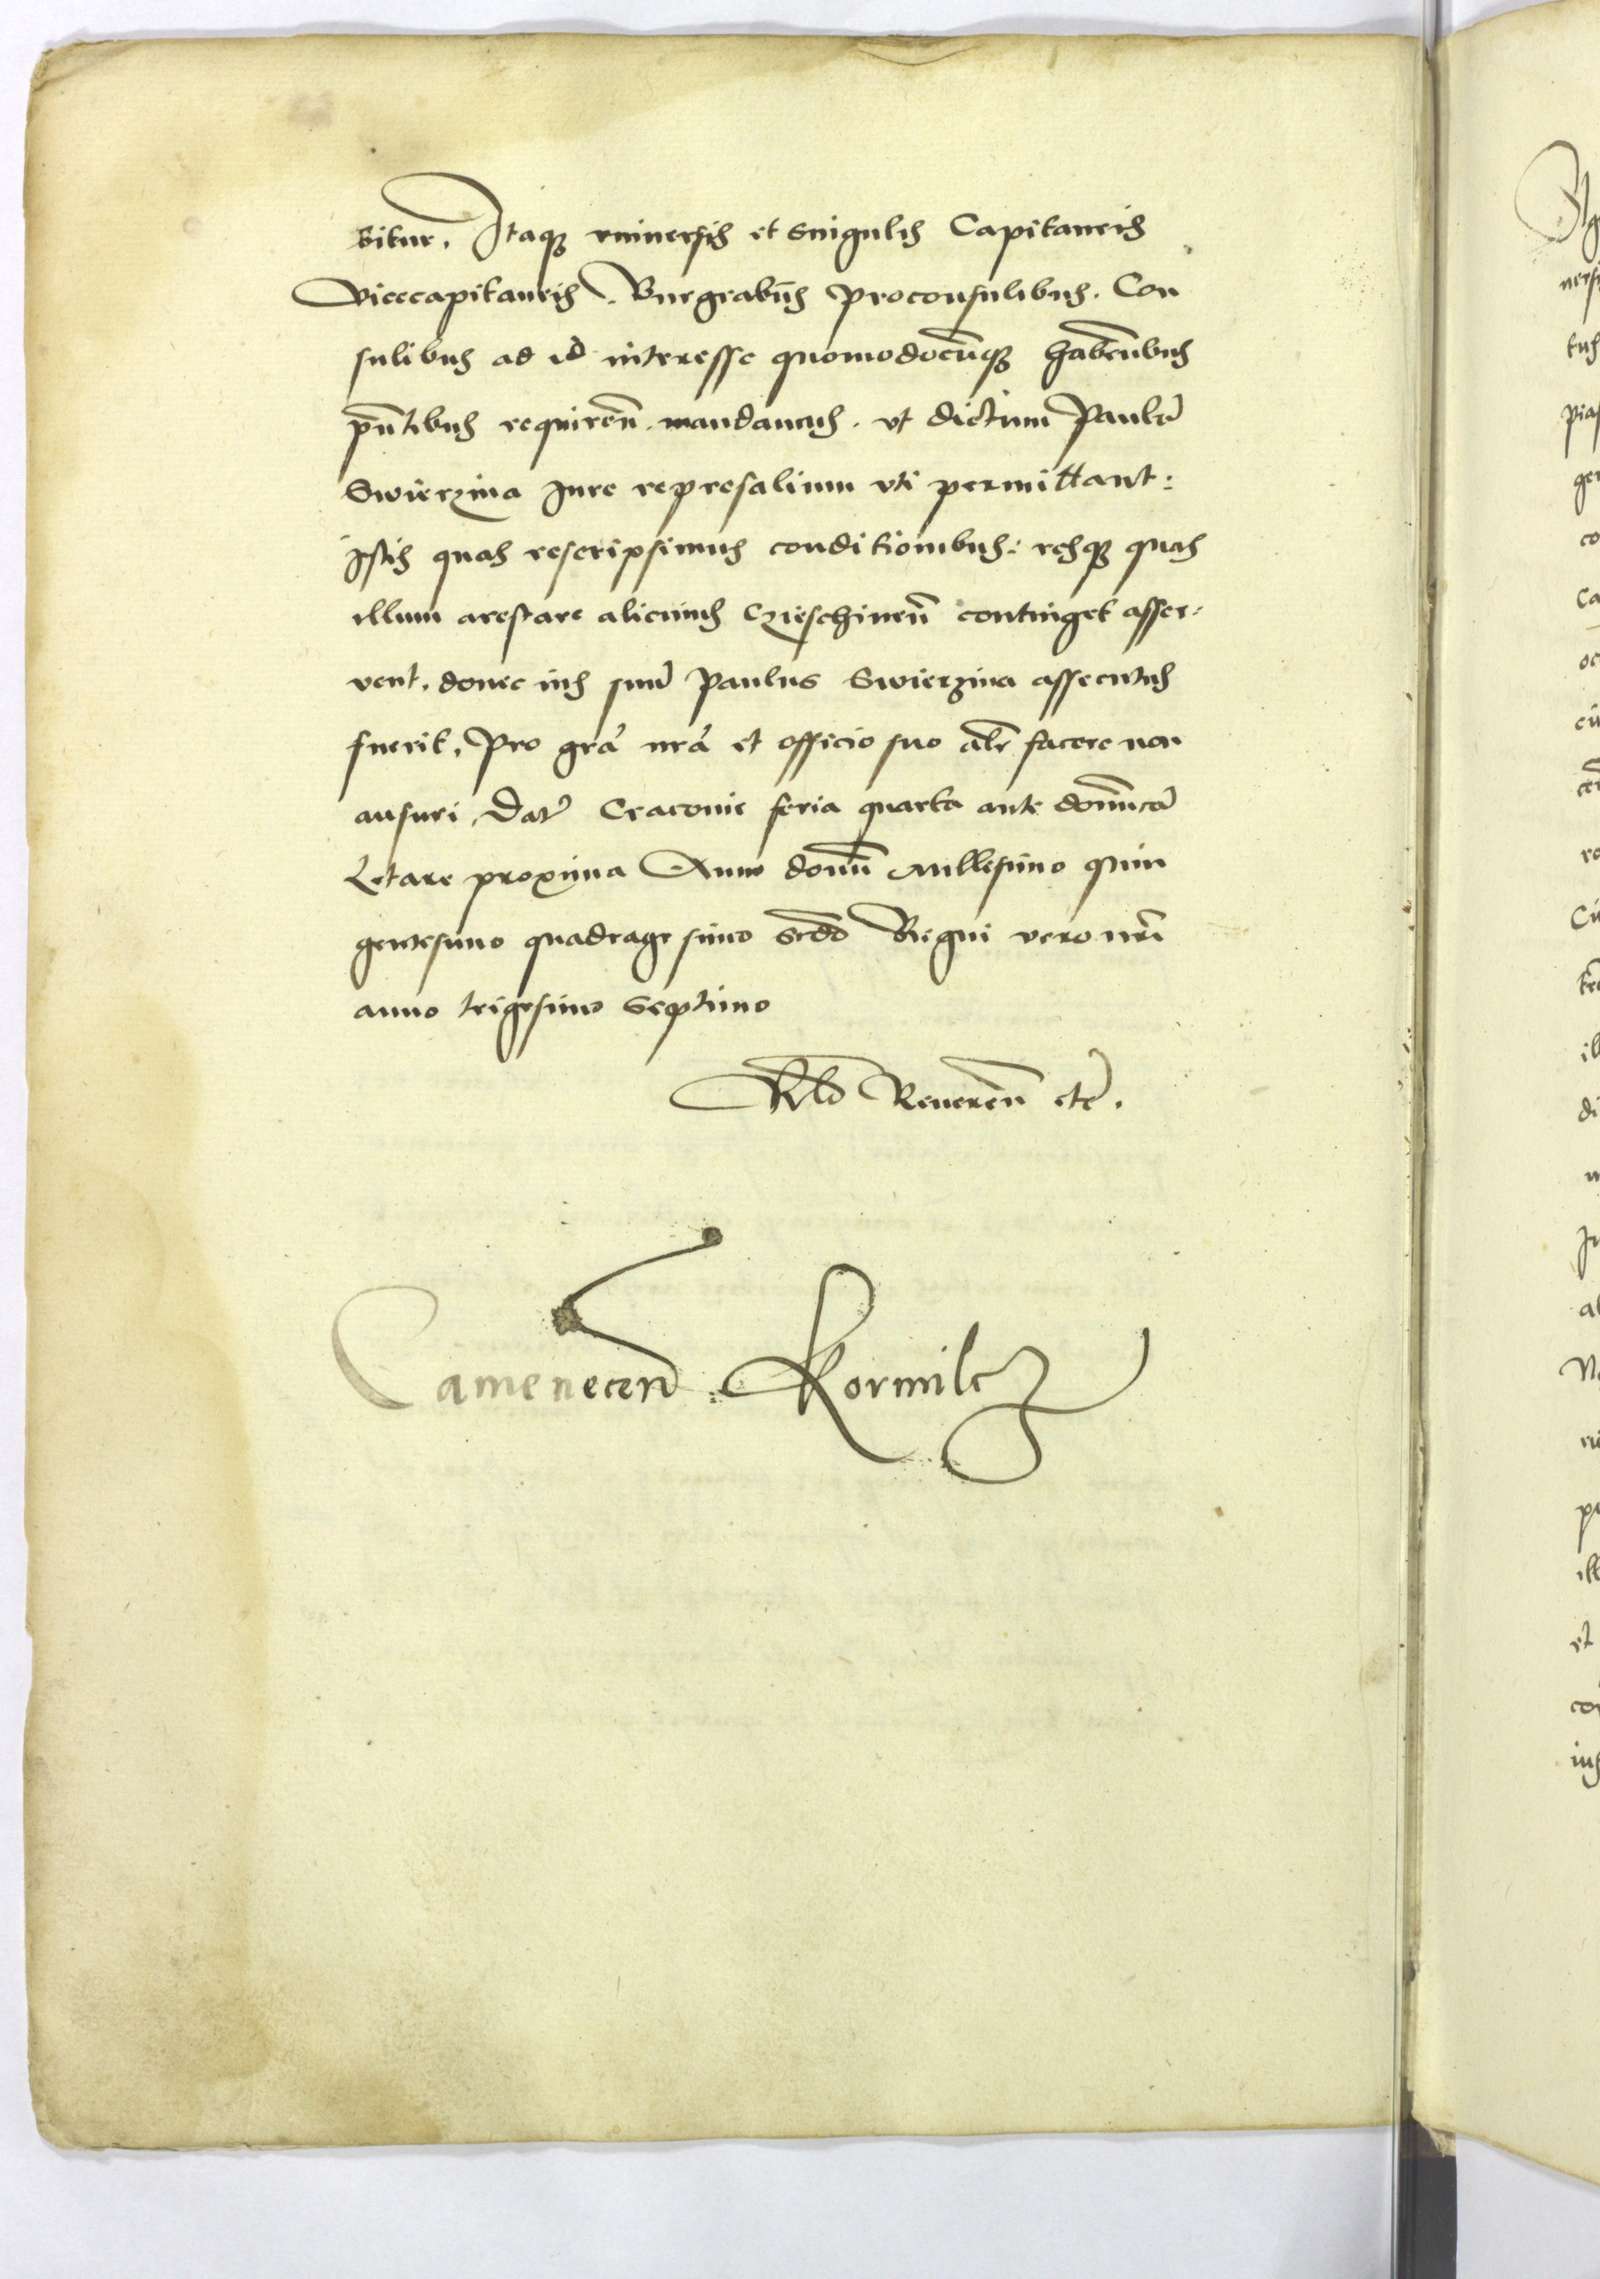 bitur. Itaq; vniuersis et singulis Capitaneis
Vicecapitaneis. Burgrabiis proconsulibus. Con
sulibus ad id interesse quomodocunq; habentibus
pntibus requiren. mandamus. vt dictum Paulu
Swierzina Iure represalium vti permittant:
Istis quas rescripsimus conditionibus: resq; quas
illum arestare alicuius Czieschinen continget asser-
vent. donec ius suu Paulus Swierzina assecutus
fuerit. Pro gra nra et officio suo alr facere non
ausuri. Dat Cracouie feria quarta ante dominica
Letare proxima Anno domini millesimo quin
gentesimo quadragesimo scdo Regni vero nri
anno trigesimo septimo
Rlo Reueren etc.
Camenecen Kormilcz